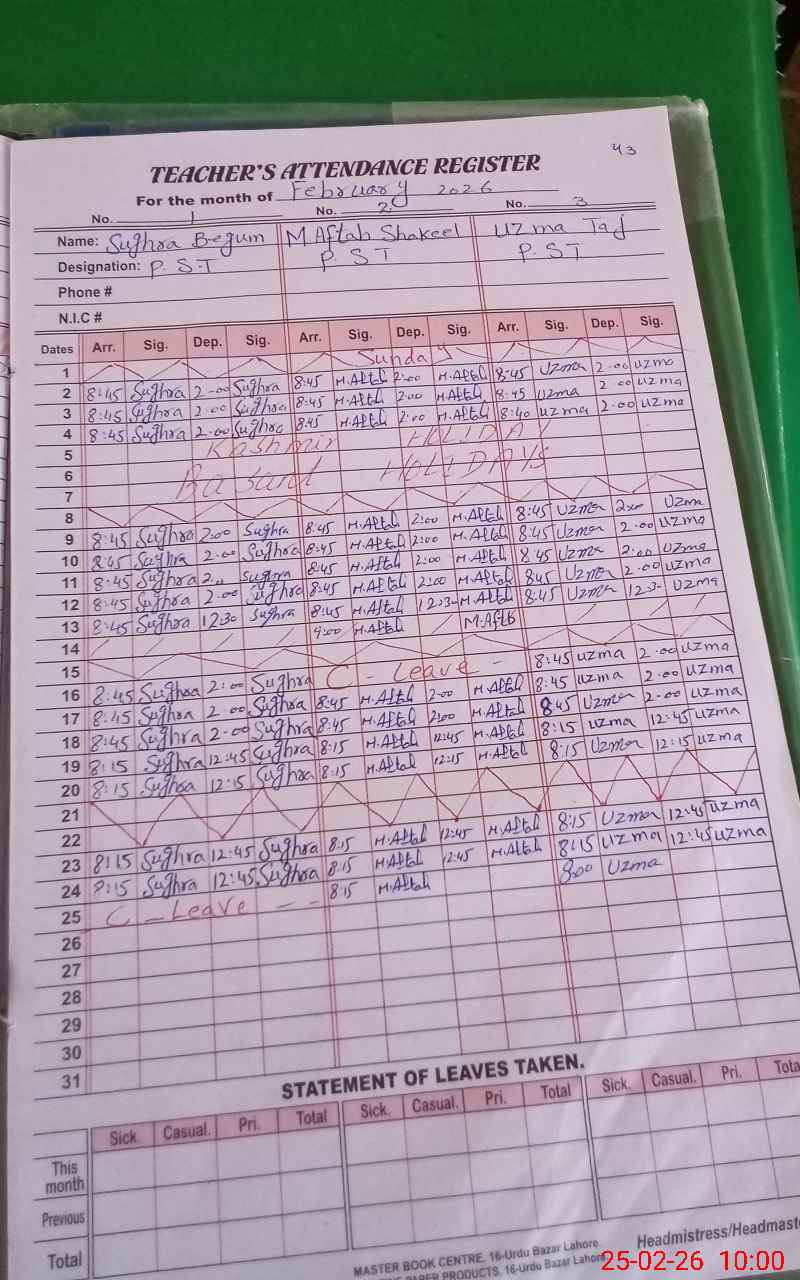 43
TEACHER'S ATTENDANCE REGISTER
For the month of February 2026
No. 1 No. 2 No. 3
Name: Sughra Begum M Aftab Shakeel Uzma Taj
Designation: P.S.T P.S.T P.S.T
Phone #
N.I.C #
Dates Arr. Sig. Dep. Sig. Arr. Sig. Dep. Sig. Arr. Sig. Dep. Sig.
1 Sunday
2 8:45 Sughra 2-00 Sughra 8:45 M.Aftab 2:00 M.Aftab 8:45 Uzma 2-00 uzma
3 8:45 Sughra 2-00 Sughra 8:45 M.Aftab 2:00 M.Aftab 8:45 uzma 2-00 uzma
4 8:45 Sughra 2-00 Sughra 8:45 M.Aftab 2:00 M.Aftab 8:40 uzma 2-00 uzma
5 Kashmir HOLIDAY
6 Basant HOLIDAYS
7
8
9 8:45 Sughra 2:00 Sughra 8:45 M.Aftab 2:00 M.Aftab 8:45 Uzma 2:00 Uzma
10 8:45 Sughra 2-00 Sughra 8:45 M.Aftab 2:00 M.Aftab 8:45 Uzma 2-00 uzma
11 8:45 Sughra Sughra 8:45 M.Aftab 2:00 M.Aftab 8:45 Uzma 2:00 Uzma
12 8:45 Sughra 2-00 Sughra 8:45 M.Aftab 2:00 M.Aftab 8:45 Uzma 2-00 uzma
13 8:45 Sughra 12:30 Sughra 8:45 M.Aftab M.Aftab 8:45 Uzma Uzma
14 9:00 M.Aftab M.Aftb
15
16 8:45 Sughra 2:00 Sughra C - Leave - 8:45 uzma 2-00 uzma
17 8:45 Sughra 2-00 Sughra 8:45 M.Aftab 2-00 M.Aftab 8:45 uzma 2-00 uzma
18 8:45 Sughra 2-00 Sughra 8:45 M.Aftab 2:00 M.Aftab 8:45 Uzma 2-00 uzma
19 8:15 Sughra 12:45 Sughra 8:15 M.Aftab 12:45 M.Aftab 8:15 uzma 12:45 uzma
20 8:15 Sughra 12:15 Sughra 8:15 M.Aftab 12:15 M.Aftab 8:15 Uzma 12:15 uzma
21
22
23 8:15 Sughra 12:45 Sughra 8:15 M.Aftab 12:45 M.Aftab 8:15 Uzma 12:45 uzma
24 8:15 Sughra 12:45 Sughra 8:15 M.Aftab 12:45 M.Aftab 8:15 Uzma 12:45 uzma
25 C - Leave - - 8:15 M.Aftab 8:00 Uzma
26
27
28
29
30
31
STATEMENT OF LEAVES TAKEN.
Sick. Casual. Pri. Total Sick. Casual. Pri. Total Sick. Casual. Pri.
This month
Previous
Total
MASTER BOOK CENTRE, 16-Urdu Bazar Lahore.
PAPER PRODUCTS, 16-Urdu Bazar Lahore
25-02-26 10:00